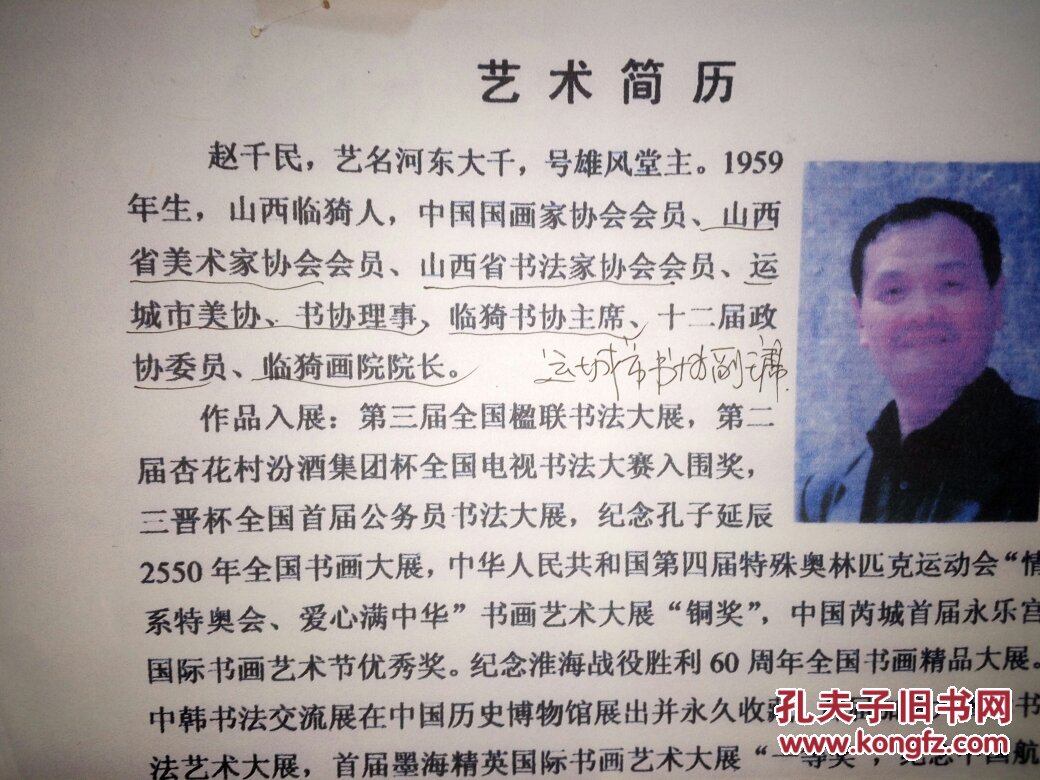 艺术简历
赵千民，艺名河东大千，号雄风堂主。1959
年生，山西临猗人，中国国画家协会会员、山西
省美术家协会会员、山西省书法家协会会员、运
城市美协、书协理事、临猗书协主席、十二届政
协委员、临猗画院院长。
运城市书协副主席
作品入展：第三届全国楹联书法大展，第二
届杏花村汾酒集团杯全国电视书法大赛入围奖，
三晋杯全国首届公务员书法大展，纪念孔子延辰
2550年全国书画大展，中华人民共和国第四届特殊奥林匹克运动会“情
系特奥会、爱心满中华”书画艺术大展“铜奖”，中国芮城首届永乐宫
国际书画艺术节优秀奖。纪念淮海战役胜利60周年全国书画精品大展。
中韩书法交流展在中国历史博物馆展出并永久收
书
法艺术大展，首届墨海精英国际书画艺术大展“一等奖”，
中国航
孔夫子旧书网
www.kongfz.com